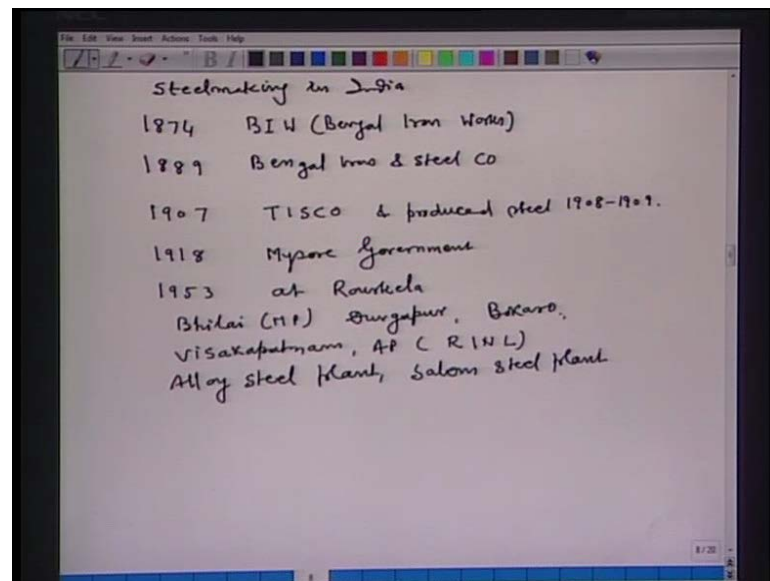 File Edit View Insert Actions Tools Help
Steelmaking in India
1874 BIW (Bengal Iron Works)
1889 Bengal Iron & Steel Co
1907 TISCO & produced steel 1908-1909.
1918 Mysore Government
1953 at Rourkela
Bhilai (MP) Durgapur, Bokaro,
Visakapatnam, AP (RINL)
Alloy steel plant, Salem steel plant
8/20